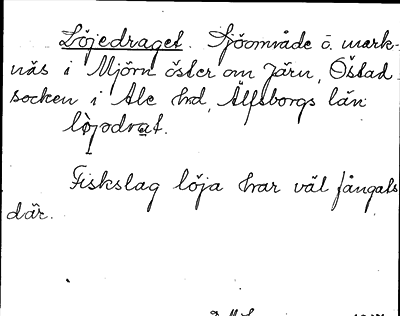 Löjedraget. Sjöområde o. mark-
näs i Mjörn öster om Järn, Östad
socken i Ale hrd, Älfsborgs län
löjɔdrat.
Fiskslag löja har väl fångats
där.